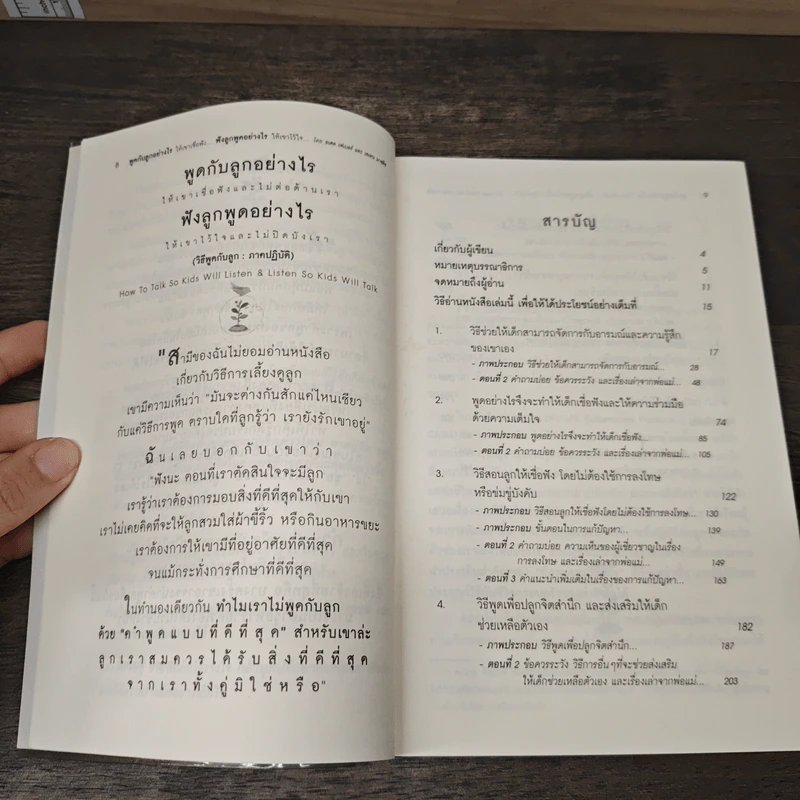 8 พูดกับลูกอย่างไร ให้เขาเชื่อฟัง... ฟังลูกพูดอย่างไร ให้เขาไว้ใจ...
พูดกับลูกอย่างไร
ให้เขาเชื่อฟังและไม่ต่อต้านเรา
ฟังลูกพูดอย่างไร
ให้เขาไว้ใจและไม่ปิดบังเรา
(วิธีพูดกับลูก : ภาคปฏิบัติ)
How To Talk So Kids Will Listen & Listen So Kids Will Talk
"สามีของฉันไม่ยอมอ่านหนังสือ
เกี่ยวกับวิธีการเลี้ยงดูลูก
เขามีความเห็นว่า "มันจะต่างกันสักแค่ไหนเชียว
กับแค่วิธีการพูด ตราบใดที่ลูกรู้ว่า เรายังรักเขาอยู่"
ฉันเลยบอกกับเขาว่า
"ฟังนะ ตอนที่เราตัดสินใจจะมีลูก
เรารู้ว่าเราต้องการมอบสิ่งที่ดีที่สุดให้กับเขา
เราไม่เคยคิดที่จะให้ลูกสวมใส่ผ้าขี้ริ้ว หรือกินอาหารขยะ
เราต้องการให้เขามีที่อยู่อาศัยที่ดีที่สุด
จนแม้กระทั่งการศึกษาที่ดีที่สุด
ในทำนองเดียวกัน ทำไมเราไม่พูดกับลูก
ด้วย "คำพูดแบบที่ดีที่สุด" สำหรับเขาล่ะ
ลูกเราสมควรได้รับสิ่งที่ดีที่สุด
จากเราทั้งคู่มิใช่หรือ"
9
สารบัญ
เกี่ยวกับผู้เขียน 4
หมายเหตุบรรณาธิการ 5
จดหมายถึงผู้อ่าน 11
วิธีอ่านหนังสือเล่มนี้ เพื่อให้ได้ประโยชน์อย่างเต็มที่ 15
1. วิธีช่วยให้เด็กสามารถจัดการกับอารมณ์และความรู้สึก
ของเขาเอง 17
- ภาพประกอบ วิธีช่วยให้เด็กสามารถจัดการกับอารมณ์... 28
- ตอนที่ 2 คำถามบ่อย ข้อควรระวัง และเรื่องเล่าจากพ่อแม่... 48
2. พูดอย่างไรจึงจะทำให้เด็กเชื่อฟังและให้ความร่วมมือ
ด้วยความเต็มใจ 74
- ภาพประกอบ พูดอย่างไรจึงจะทำให้เด็กเชื่อฟัง... 85
- ตอนที่ 2 คำถามบ่อย ข้อควรระวัง และเรื่องเล่าจากพ่อแม่... 105
3. วิธีสอนลูกให้เชื่อฟัง โดยไม่ต้องใช้การลงโทษ
หรือข่มขู่บังคับ 122
- ภาพประกอบ วิธีสอนลูกให้เชื่อฟังโดยไม่ต้องใช้การลงโทษ... 130
- ภาพประกอบ ขั้นตอนในการแก้ปัญหา... 139
- ตอนที่ 2 คำถามบ่อย ความเห็นของผู้เชี่ยวชาญในเรื่อง
การลงโทษ และเรื่องเล่าจากพ่อแม่... 149
- ตอนที่ 3 คำแนะนำเพิ่มเติมในเรื่องของการแก้ปัญหา... 163
4. วิธีพูดเพื่อปลูกจิตสำนึก และส่งเสริมให้เด็ก
ช่วยเหลือตัวเอง 182
- ภาพประกอบ วิธีพูดเพื่อปลูกจิตสำนึก... 187
- ตอนที่ 2 ข้อควรระวัง วิธีการอื่นๆที่จะช่วยส่งเสริม
ให้เด็กช่วยเหลือตัวเอง และเรื่องเล่าจากพ่อแม่... 203